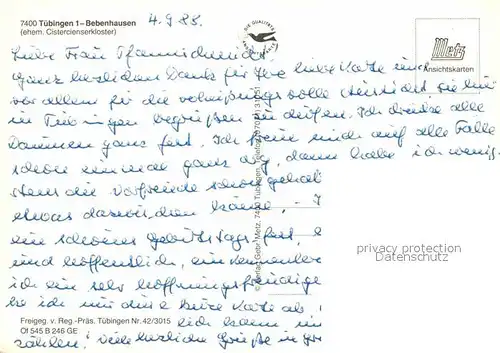 7400 Tübingen 1 – Bebenhausen
(ehem. Cistercienserkloster)
4.9.88.
DIE QUALITÄTS
KARTE
Metz
Ansichtskarten
Liebe Frau Pfannschmidt!
Ganz herzlichen Dank für Ihre liebe Karte und
vor allem für die verheißungsvolle Aussicht sie hier
in Tübingen begrüßen zu dürfen. Ich drücke alle
Daumen ganz fest. Ich freue mich auf alle Fälle
schon einmal ganz arg, dann habe ich wenig-
stens die Vorfreude schon gehabt
etwas dazwischen käme. -
ein schönes Geburtstags-fest,
und hoffentlich, ein
ich ein sehr hoffnungsfreudige
ich nur diese kurze Karte ab,
ich kann
zählen! Viele herzliche Grüße in
© Verlag Gebr. Metz, 7400 Tübingen, Telefon (07071)
privacy protection
Datenschutz
Freigeg. v. Reg.-Präs. Tübingen Nr. 42/3015
Of 545 B 246 GE